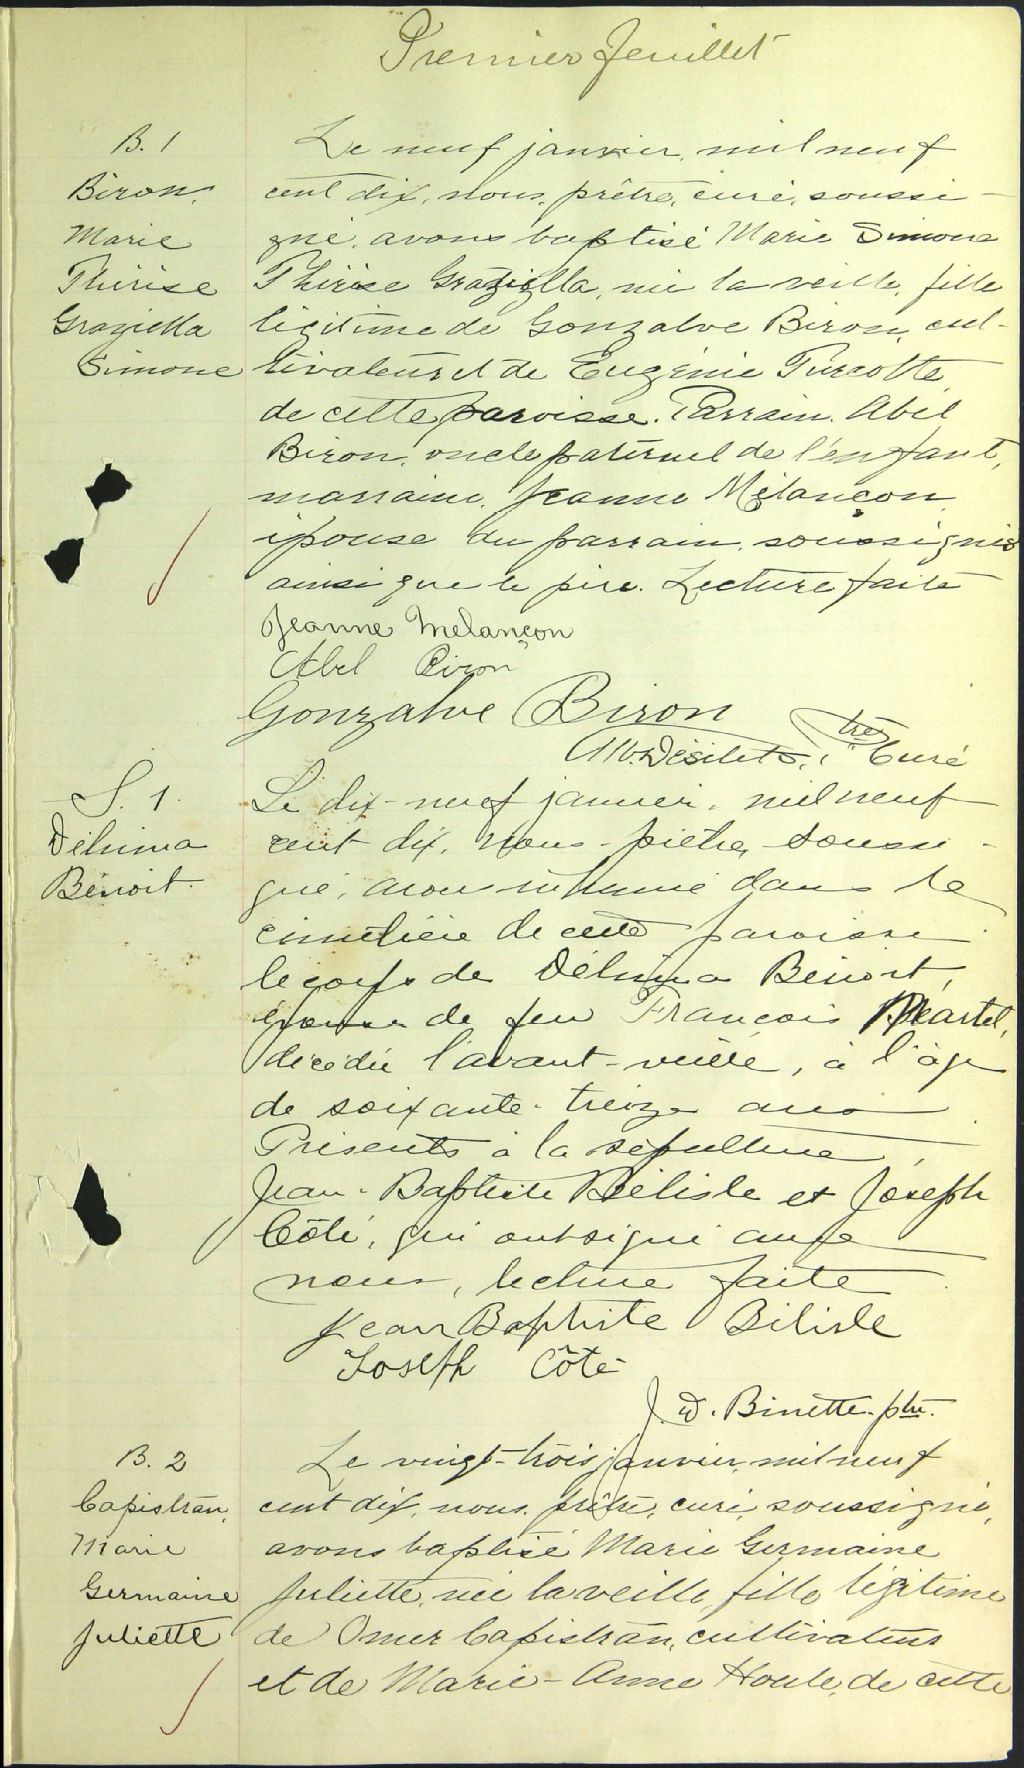 Premier feuillet
B. 1
Biron,
Marie
Thérèse
Graziella
Simone
Le neuf janvier, mil neuf
cent dix, nous, prêtre, curé, soussi-
gné, avons baptisé Marie Simone
Thérèse Graziella, née la veille, fille
légitime de Gonzalve Biron, cul-
tivateur et de Eugénie Turcotte
de cette paroisse. Parrain, Abel
Biron, oncle paternel de l'enfant,
marraine, Jeanne Mélançon,
épouse du parrain, soussignés
ainsi que le père. Lecture faite
Jeanne Melançon
Abel Biron
Gonzalve Biron
Désilets, ptre Curé
S. 1.
Délima
Bénoit.
Le dix-neuf janvier, mil neuf
cent dix, nous prêtre, soussi-
gné, avons inhumé dans le
cimetière de cette paroisse
le corps de Délima Bénoit,
épouse de feu François Martel,
décédée l'avant-veille, à l'âge
de soixante-treize ans
Présents à la sépulture,
Jean-Baptiste Bélisle et Joseph
Côté, qui ont signé avec
nous, lecture faite.
Jean Baptiste Bélisle
Joseph Côté
J. D. Binette ptre.
B. 2
Capistran,
Marie
Germaine
Juliette
Le vingt-trois janvier, mil neuf
cent dix, nous, prêtre, curé, soussigné,
avons baptisé Marie Germaine
Juliette, née la veille, fille légitime
de Omer Capistran, cultivateur
et de Marie-Anne Houle, de cette